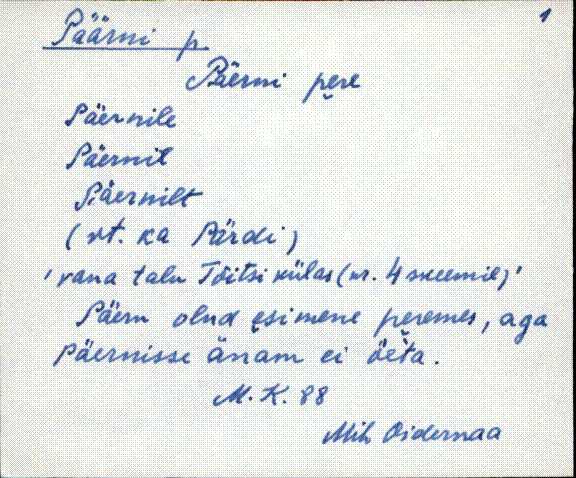 1
Päärni p.
Päerni pere
Päernile
Päernil
Päernilt
(vt. ka Pärdi)
'vana talu Tõitsi külas (nr. 4 skeemil)'
Päern olnd esimene peremes, aga
Päernisse änam ei öeta.
M. K. 88
Mih. Oidermaa